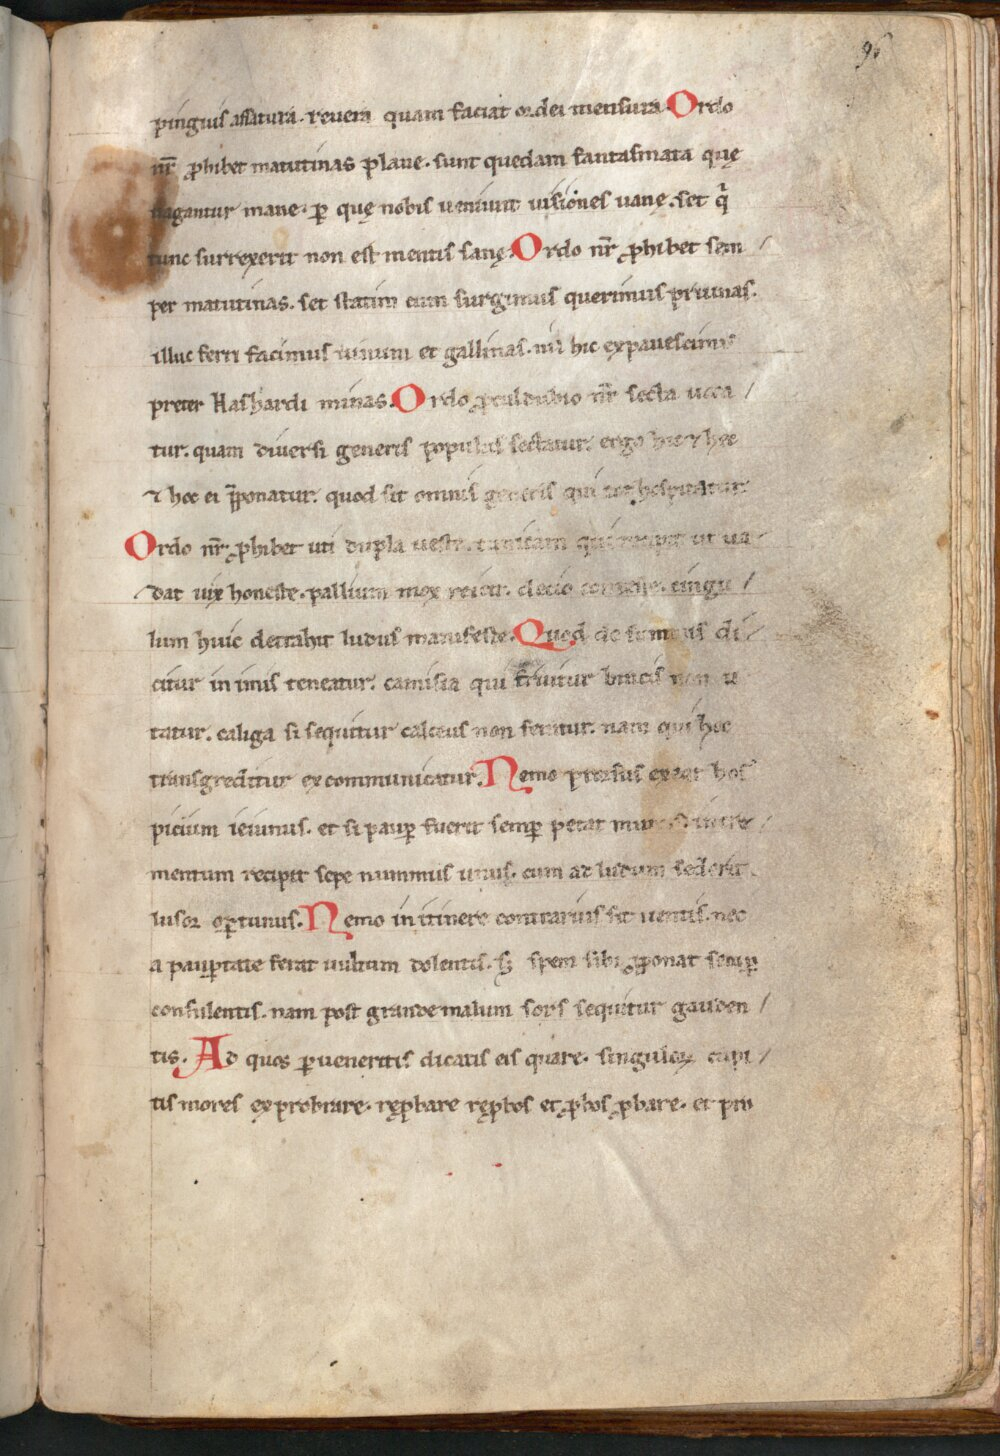 96
pinguis assatura. revera quam faciat ordei mensura. Ordo
nr̄ ꝓhibet matutinas plane. sunt quedam fantasmata quę
uagantur mane. ꝑ quę nobis ueniunt uisiones uanę. set q̄
tunc surrexerit non est mentis sanę. Ordo nr̄ ꝓhibet sem /
per matutinas. set statim cum surgimus querimus pruinas.
illuc ferri facimus uinum et gallinas. nil hic expauescimus
preter Hashardi minas. Ordo ꝓculdubio nr̄ secta uoca /
tur. quam diuersi generis populus sectatur. ergo hic ⁊ hec
⁊ hoc ei p̄ponatur. quod sit omnis generis qui tot hospitatur.
Ordo nr̄ ꝓhibet uti dupla ueste. tunicam qui recipit ut ua
dat uix honeste. pallium mox reicit. decio conteste. cingu /
lum huic detrahit ludus manifeste. Quod de summis di /
citur in imis teneatur. camisia qui fruitur bracis non u
tatur. caliga si sequitur calceus non feratur. nam qui hoc
transgreditur excommunicatur. Nemo prorsus exeat hos
picium ieiunus. et si pauꝑ fuerit semꝑ petat munus incre /
mentum recipit sepe nummus unus. cum ad ludum sederit
lusor oꝑtunus. Nemo in itinere contrarius sit uentis. nec
a pauꝑtate ferat uultum dolentis. sꝫ spem sibi ꝓponat semꝑ
consulentis. nam post grande malum sors sequitur gauden /
tis. Ad quos ꝑueneritis dicatis eis quare. singuloꝝ cupi /
tis mores exprobrare. reꝓbare reꝓbos et ꝓbos ꝓbare. et pro